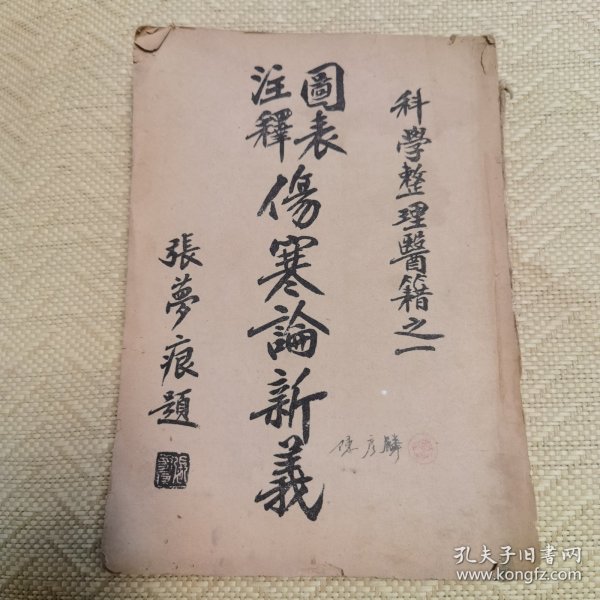 科學整理醫籍之一
圖表
注釋
傷寒論新義
張夢痕題
孔夫子旧书网
www.kongfz.com